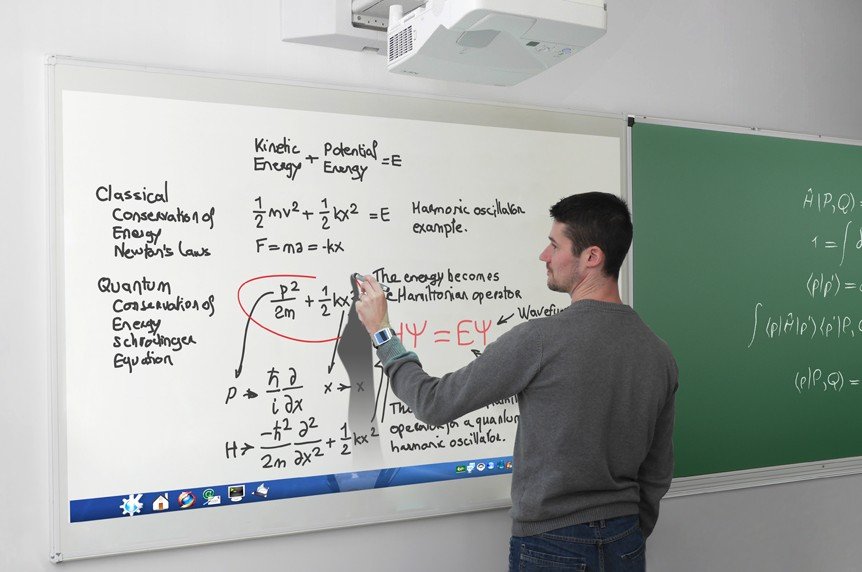 Kinetic Energy + Potential Energy = E
Classical
Conservation of
Energy
Newton's Laws
1/2 mv² + 1/2 kx² = E
Harmonic oscillator
example.
F = ma = -kx
Quantum
Conservation of
Energy
Schrodinger
Equation
p²/2m + 1/2 kx²
The energy becomes
Hamiltonian operator
HΨ = EΨ
P → ħ/i ∂/∂x
x → x
H → -ħ²/2m ∂²/∂x² + 1/2 kx²
The
operator for a quantum
harmonic oscillator.
Ĥ|P,Q) =
1 = ∫
⟨p|p'⟩ =
∫⟨p|Ĥ|p'⟩⟨p'|P,Q
⟨p|P,Q) =